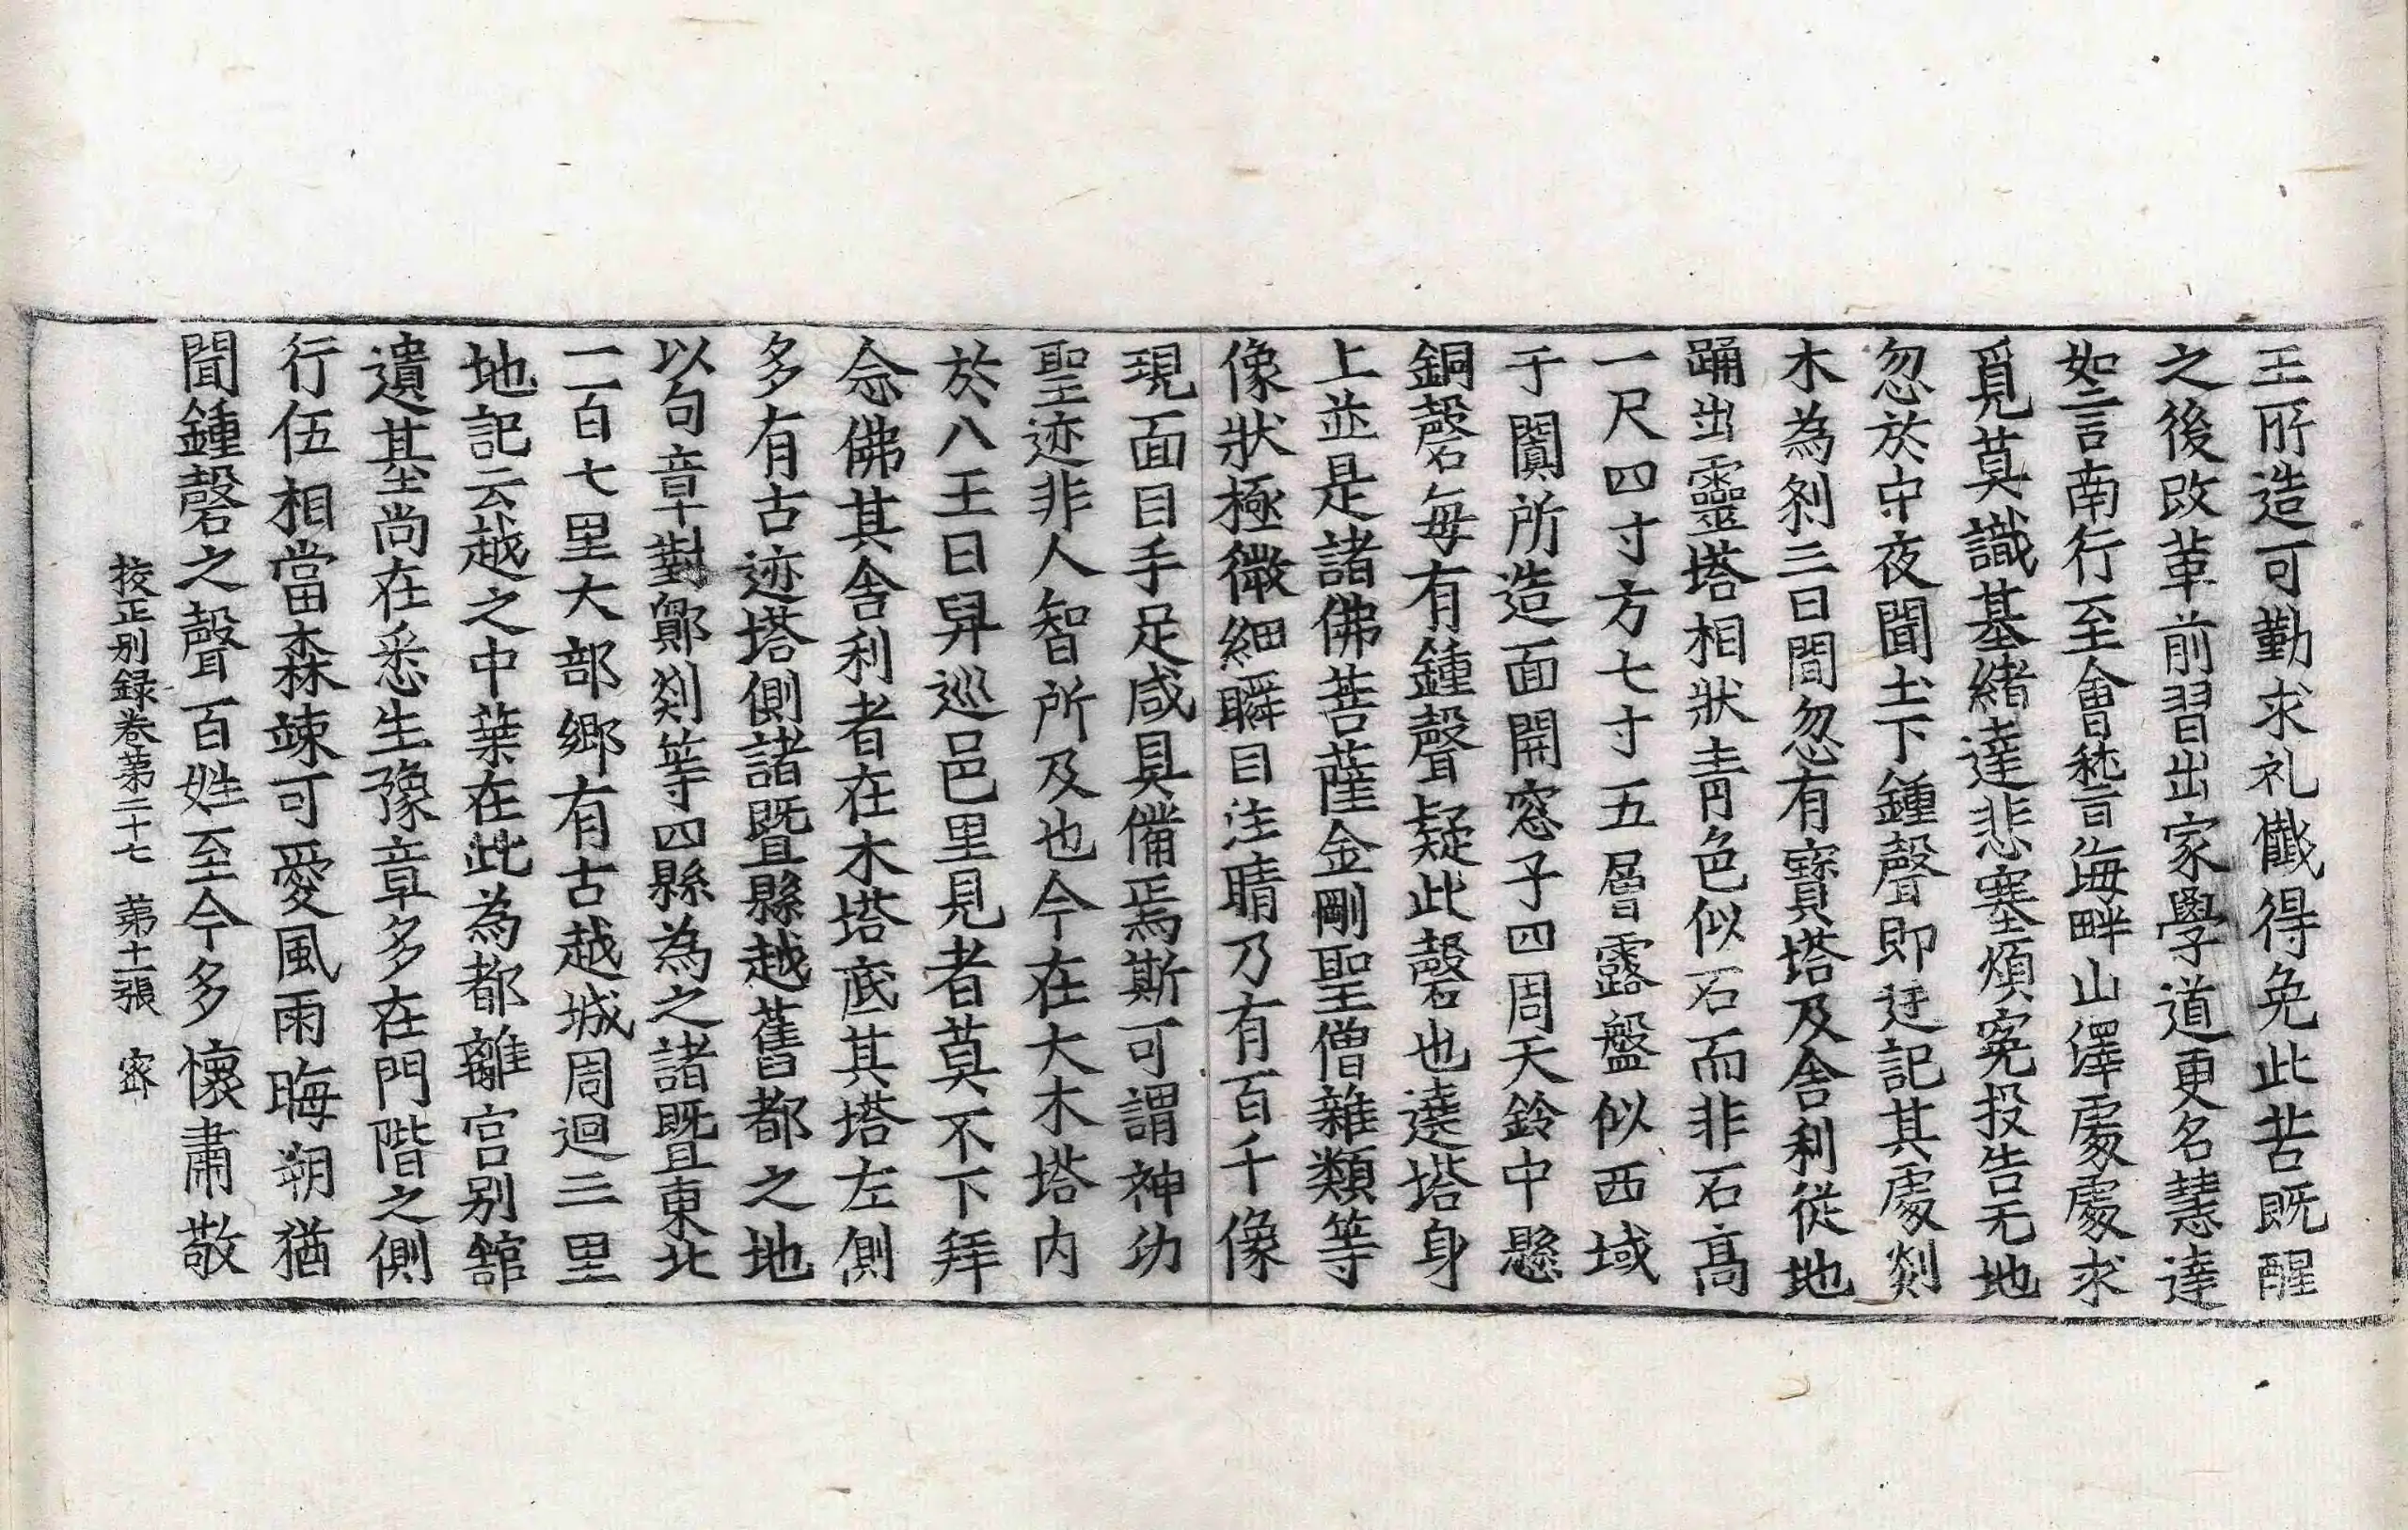 王所造可勤求礼懺得免此苦既醒
之後改革前習出家學道更名慧達
如言南行至會嵇言海畔山澤處處求
覓莫識基緒達悲塞煩寃投告无地
忽於中夜聞土下鍾聲即迂記其處剡
木為刹三日間忽有寶塔及舎利從地
踊出靈塔相狀青色似石而非石高
一尺四寸方七寸五層露盤似西域
于闐所造面開窓子四周天鈴中懸
銅磬每有鍾聲疑此磬也遶塔身
上並是諸佛菩薩金剛聖僧雜類等
像狀極微細瞬目注睛乃有百千像
現面目手足咸具備焉斯可謂神功
聖迹非人智所及也今在大木塔内
於八王日舁巡邑里見者莫不下拜
念佛其舎利者在木塔底其塔左側
多有古迹塔側諸暨縣越舊都之地
以句章鄞剡等四縣為之諸暨東北
一百七里大部郷有古越城周迴三里
地記云越之中葉在此為都離宫别舘
遺基尚在悉生豫章多在門階之側
行伍相當森竦可愛風雨晦朔猶
聞鍾磬之聲百姓至今多懷肅敬
挍正别録卷第二十七 第十一張 宻